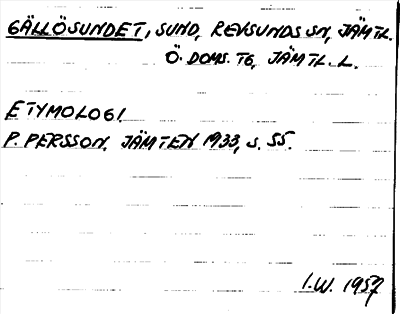 GÄLLÖSUNDET, SUND, REVSUNDS SN, JÄMTL.
Ö. DOMS. TG, JÄMTL. L.
ETYMOLOGI.
P. PERSSON, JÄMTEN 1933, S. 55.
I.W. 1957